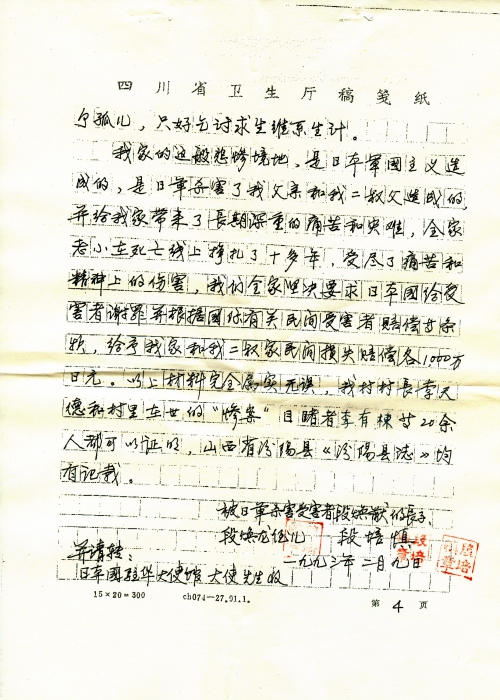 四川省卫生厅稿笺纸
孤儿，只好乞讨求生维系生计。
我家的这般悲惨境地，是日本軍國主义造
成的，是日軍杀害了我父亲和我二叔父造成的，
并给我家带来了長期深重的痛苦和灾难，全家
老小在死亡线上挣扎了十多年，受尽了痛苦和
精神上的伤害，我们全家坚决要求日本國给受
害者谢罪并根据國际有关民间受害者赔偿
给予我家和我二叔家民间损失赔偿各1,000万
日元。以上材料完全属实无误，我村村長李天
德和村里在世的“惨案”目睹者李有棟等20余
人都可以证明，山西省汾陽县《汾陽县志》均
有记载。
被日軍杀害受害者段焕猷的長子
段焕龙侄儿 段培慎
一九九三年二月九日
并请转：
日本國驻华大使馆 大使先生收
15×20=300 ch074—27.01.1. 第 4 页